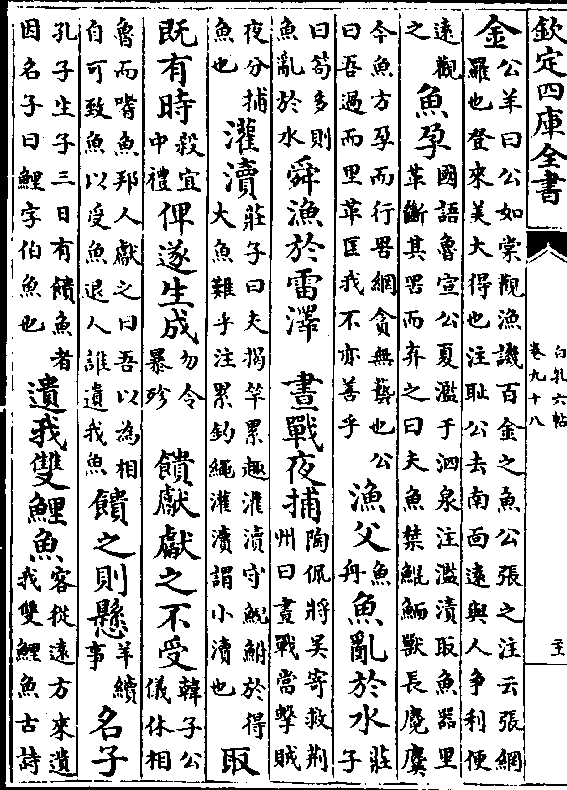 欽定四庫全書
白孔六帖
卷九十八
至
金
公羊曰公如棠觀漁譏百金之魚公張之注云張網
羅也登來美大得也注恥公去南面遠與人爭利便
遠觀
之
魚孕
國語魯宣公夏濫于泗泉注濫漬取魚器里
革斷其罟而弃之曰夫魚禁鯤鮞獸長麑麌
今魚方孕而行罟網貪無藝也公
曰吾過而里革匡我不亦善乎
漁父
魚
丹
魚亂於水
莊
子
曰苟多則
魚亂於水
舜漁於雷澤
晝戰夜捕
陶侃將吳寄救荆
州曰晝戰當擊賊
夜分捕
魚也
灌瀆
莊子曰夫揭竿累趣灌瀆守鯢鮒於得
大魚難乎注累釣繩灌瀆謂小瀆也
取
既有時
殺宜
中禮
俾遂生成
勿令
暴殄
饋獻獻之不受
韓子公
儀休相
魯而嗜魚邦人獻之曰吾以為相
自可致魚以受魚退人誰遺我魚
饋之則懸
羊續
事
名子
孔子生子三日有饋魚者
因名子曰鯉字伯魚也
遺我雙鯉魚
客從遠方來遺
我雙鯉魚古詩